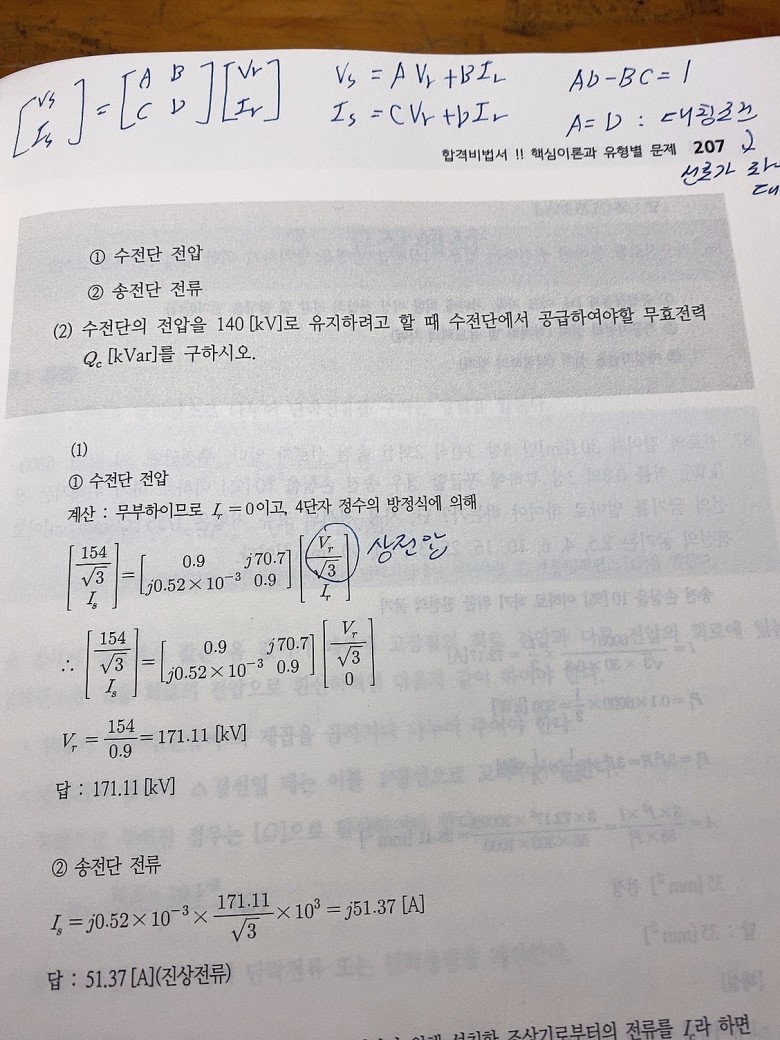 [Vs Is] = [A B C D] [Vr Ir]
Vs = A Vr + B Ir
Is = C Vr + D Ir
AD - BC = 1
A = D : 대칭
합격비법서 !! 핵심이론과 유형별 문제 207
선로가
① 수전단 전압
② 송전단 전류
(2) 수전단의 전압을 140 [kV]로 유지하려고 할 때 수전단에서 공급하여야할 무효전력
Qc [kVar]를 구하시오.
(1)
① 수전단 전압
계산 : 무부하이므로 Ir = 0이고, 4단자 정수의 방정식에 의해
[154/√3 Is] = [0.9 j70.7 j0.52×10⁻³ 0.9] [Vr/√3 Ir] 상전압
∴ [154/√3 Is] = [0.9 j70.7 j0.52×10⁻³ 0.9] [Vr/√3 0]
Vr = 154/0.9 = 171.11 [kV]
답 : 171.11 [kV]
② 송전단 전류
Is = j0.52×10⁻³ × 171.11/√3 × 10³ = j51.37 [A]
답 : 51.37 [A](진상전류)
설치한 조상기로부터의 전류를 Ic라 하면